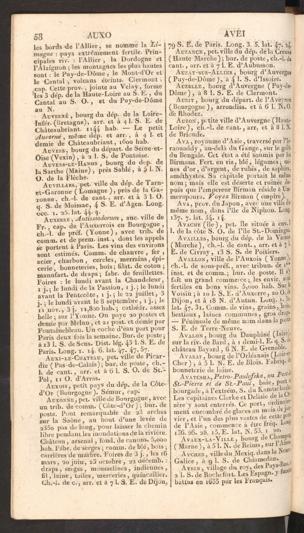 58 AUXO AVÉI
les bords de l'Allier, se nomme la Li-
magne: pays extrêmement fertile. Prin-
cipales riv. : l'Allier, la Dordogne et
l'Alaignon; les montagnes les plus hautes
sont : le Puy-de-Dôme, le Mont-d'Or et
le Cantal, volcans éteints. Clermont,
cap. Cette prov., jointe au Velay, forme
les 3 dép. de la Haute-Loire au S. E., du
Cantal au S. O., et du Puy-de-Dôme
au N.
AUVERNÉ, bourg du dép. de la Loire-
Infér. (Bretagne), arr. et à 4 l. S. E. de
Châteaubriant. 1144 hab. — Le petit
Auverné, même dép. et arr., à 4 l. et
demie de Châteaubriant, 1600 hab.
AUVERS, bourg du départ. de Seine-et-
Oise (Vexin), à 2 l. S. de Pontoise.
AUVERS-LE-HAMON, bourg du dép. de
la Sarthe (Maine), près Sablé, à 5 l. N.
O. de la Flèche.
AUVILLARS, pet. ville du dép. de Tarn-
et-Garonne (Lomagne), près de la Ga-
ronne, ch.-l. de cant., arr. et à 3 l. O.
q. S. de Moissac, 4 S. E. d'Agen. Long.
occ. 1. 25. lat. 44. 4.
AUXERRE, anc. ville de
Fr., cap. de l'Auxerrois en Bourgogne,
ch.-l. de préf. (Yonne), avec trib. de
comm. et de prem. inst., dont les appels
se portent à Paris. Les vins des environs
sont estimés. Comm. de chanvre, fer,
acier, charbon, cordes, merrains, épi-
cerie, bonneterie, bois; filat. de coton;
manufact. de draps; fabr. de feuillettes.
Foires : le lundi avant la Chandeleur,
2 j.; le lundi de la Passion, 2 j.; le lundi
avant la Pentecôte, 1 j.; le 22 juillet, 3
j.; le lundi avant le 8 septembre, 4 j.; le
12 nov., 3 j.
belle; sur l'Yonne. On paye postes et
demie par Melun, et 21 post. et demie par
Fontainebleau. Un coche d'eau part pour
Paris deux fois la semaine. Bur. de poste;
à 13 l. S. de Sens. Dist. lég. 43 l. S. E. de
Paris. Long. 1. 14. 6. lat. 47. 47. 57.
AUXI-LE-CHATEAU, pet. ville de Picar-
die (Pas-de-Calais), bur. de poste, ch.-
l. de cant., arr. et à 6 l. S. O. de St.-
Pol, 11 O. d'Arras.
AUXOIS, petit pays du dép. de la Côte-
d'Or (Bourgogne); Sémur, cap.
AUXONNE, pet. ville de Bourgogne, avec
un trib. de comm. (Côte-d'Or); bur. de
poste. Pont remarquable de 23 arches
sur la Saône, au bout d'une levée de
2350 pas de long, pour laisser le chemin
libre pendant les inondations de la rivière.
Château, arsenal, fond. de canons. 5,000
hab. Fabr. de serges; comm. de blé, bois;
carrières de marbre. Foires de 3 j., les 16
mars, 20 juin, 23 octobre, 22 décemb. :
draps, serges, mousselines, indiennes,
fil, laine, toiles, merceries, quincaillier.
Ch.-l. de c., arr. et à 7 l. S. E. de Dijon,
79 S. E. de Paris. Long. 3. 3. lat. 47.
AUZANCE, pet. ville du dép. de la Creuse
(Haute Marche); bur. de poste, ch.-l. de
cant., arr. et à 7 l. E. d'Aubusson.
AUZAT-SUR-ALLIER, bourg d'Auvergne
(Puy-de-Dôme), à 4 l. S. d'Issoire.
AUZELLE, bourg d'Auvergne (Puy-de-
Dôme), à 8 l. S. E. de Clermont.
AUZIT, bourg du départ. de l'Aveyron
(Bourgogne), arrondiss. et à 6 l. N. O.
de Rhodez.
AUZON, p. tite ville d'Auvergne (Haut-
Loire), ch.-l. de cant., arr. et à 8 l.
de Brioude.
AVA, royaume d'Asie, traversé par l'I-
raouaddy, au-delà du Gange, sur le golfe
du Bengale. Cet état a été soumis par le
Birman. Fert. en riz, blé, légumes; mi-
nes d'or, d'argent, de rubis, de saphirs,
améthystes. Sa capitale portait le même
nom; mais elle est déserte et ruinée de-
puis que l'empereur Birman réside à Um-
merapoura. Voyez Birman (empire).
AVA, prov. du Japon, avec une ville du
même nom, dans l'île de Niphon. Long.
137. 7. lat. 35. 14.
AVACHE (île), pet. île située à env.
l. de la côte S. O. de l'île St.-Domingue.
AVAILLES, bourg du dép. de la Vienne
(Marche), ch.-l. de cant., arr. et à 7 l.
E. de Civray, 13 S. S. de Poitiers.
AVALLON, ville de l'Auxois (Yonne),
ch.-l. de sous-préf., avec tribun. de 1re
inst. et de comm.; bur. de poste. Il s'y
fait un grand commerce; les environs sont
fertiles en bons vins. 5000 hab. Sur la
Voisin; à 10 l. S. d'Auxerre, 20 O. de
Dijon, et à 18 N. d'Autun. Long. 1. 34.
lat. 47. 31. Comm. de vins, grains, bois,
merrains, laines communes, gros draps.
— Péninsule de même nom située à la partie
S. E. de Terre-Neuve.
AVALON, bourg du Dauphiné (Isère),
sur la riv. de Bard, à 2 demi-l. E. q. S. du
château Bayard, 6 N. E. de Grenoble.
AVARAY, bourg de l'Orléanais (Loir-et-
Cher), à 5 l. N. E. de Blois. Fabriq. de
bonneterie de laine.
AVATCHA, Petro-Paulofska, ou Port
St.-Pierre et de St.-Paul, baie, port et
bourgade, à l'extrém. S. du Kamtschatka.
Les capitaines Clarke et Delisle de la Croyè-
re y sont enterrés. Ce port, ordinaire-
ment encombré de glaces au mois de jan-
vier, et l'un des plus vastes de cette part.
de l'Asie, commence à être fréq. Long.
156. 26. 25. E. lat. N. 53. 1. 20.
AVAUX-LA-VILLE, bourg de Champagne
(Marne), à 5 l. N. de Reims, sur l'Aisne.
AVCHES, ville du Mexiq. dans le Nouv.
Galice, à 9 l. S. de Chiametlan.
AVEIN, village du roy. des Pays-Bas,
2 l. S. de Rochefort. Les Espagn. y furent
battus en 1635 par les Français.